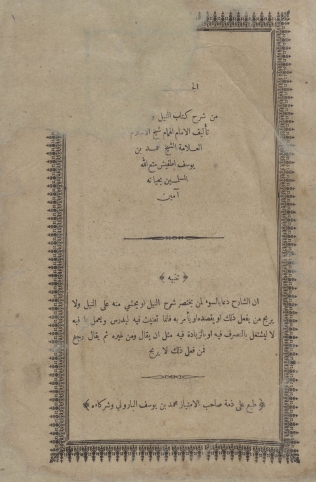 من شرح كتاب النيل
تأليف الامام الهمام شيخ الاسلام
العلامة الشيخ محمد بن
يوسف اطفيش متع الله
المسلمين بحياته
آمين
﴿ تنبيه ﴾
ان الشارح دعا بالسوء لمن يختصر شرح النيل او يحشي منه على النيل ولا
يربح من يفعل ذلك او يقصده او يأمر به فانما تعنيت فيه ليدرس ويعمل بما فيه
لا ليشتغل بالتصرف فيه او بالزيادة فيه مثل ان يقال ومن غيره ثم يقال رجع
فمن فعل ذلك لا يربح
﴿ طبع على ذمة صاحب الامتياز محمد بن يوسف الباروني وشركاه ﴾